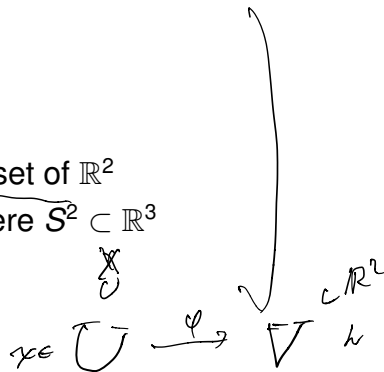 set of ℝ²
ere S² ⊂ ℝ³
X
∪
x ∈ U —φ→ V ⊂ ℝ²